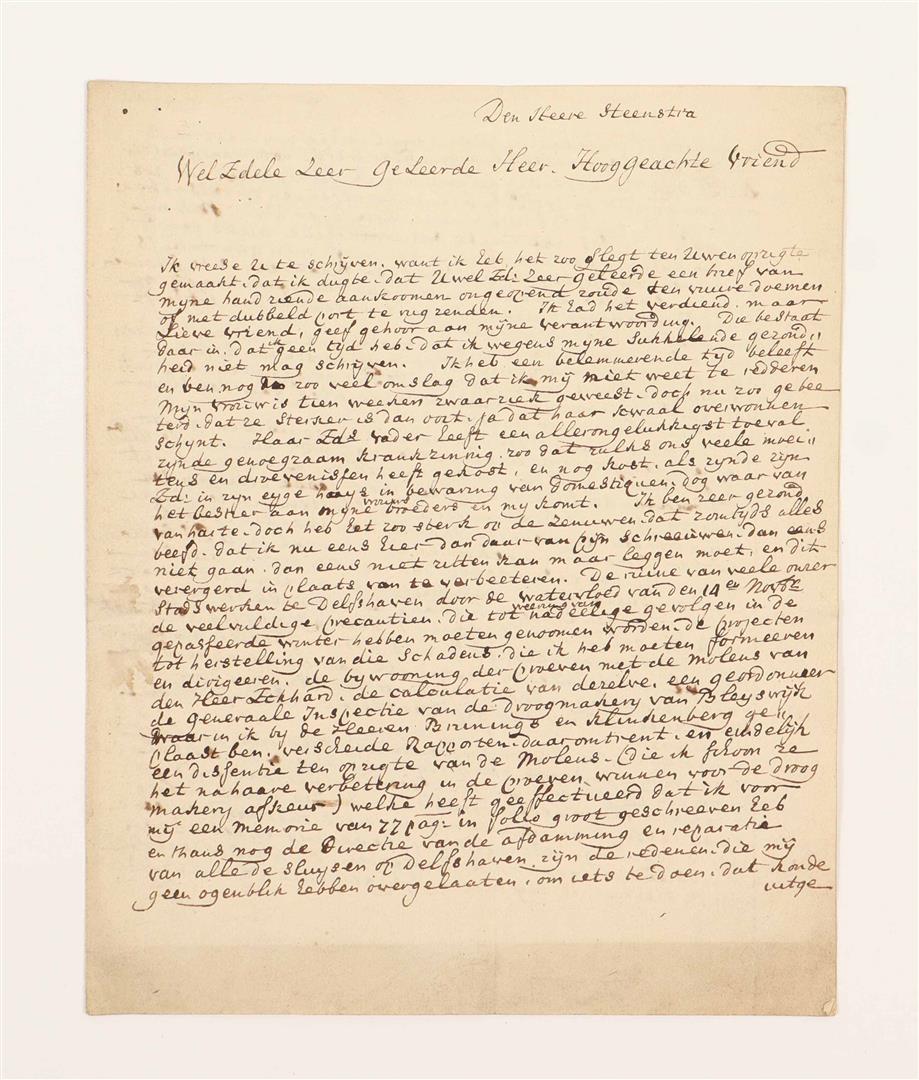 Den Heere Steenstra
Wel Edele Zeer Geleerde Heer. Hooggeachte Vriend
Ik vreese U te schrijven. want ik heb het zoo slegt ten Uwen opzigte
gemaakt. dat ik dugte. dat Uwel Ed: Zeer Geleerde een brief van
myne hand ziende aankoomen ongeopend zoude ten vuure doemen
of met dubbeld port te rug zenden. Ik had het verdiend. maar
Lieve vriend, geef gehoor aan mijne verantwoording. Die bestaat
daar in. dat ik geen tyd heb. dat ik wegens myne sukkelende gezond„
heid niet mag schrijven. Ik heb een belemmerende tyd beleeft
en ben nog in zoo veel omslag dat ik mij niet weet te redderen
Myn vrouw is tien weeken zwaar ziek geweest. doch nu zoo gebee
terd. dat ze sterker is dan ooit. ja dat haar kwaal overwonnen
schynt. Haar Eds vader heeft een allerongelukkigst toeval
zynde genoegzaam krankzinnig. zoo dat zulks ons veele moei„
tens en droevenissen heeft gekost, en nog kost, als zynde zijn
Ed: in zyn eyge huys in bewaring van domestiquen. dog waar van
het bestier aan myne vrouws broeders en my komt. Ik ben zeer gezond
van harte. doch heb het zoo sterk op de zenuwen. dat zomtyds alles
beefd. dat ik nu eens hier dan daar van pijn schreeuwen. dan eens
niet gaan. dan eens niet zitten kan maar leggen moet, en dit
verergerd in plaats van te verbeeteren. De ruine van veele onzer
Stads werken te Delfshaven door de watervloed van den 14en Novbr.
de veelvuldige precautien. die tot weering van nadeelige gevolgen in de
gepasseerde winter hebben moeten genoomen worden. de projecten
tot herstelling van die Schadens. die ik heb moeten formeeren
en dirigeeren. de bywooning der proeven met de Molens van
den Heer Eckhard. de calculatie van dezelve. een geordonneer
de Generaale Inspectie van de droogmakery van Bleyswijk
waar in ik by de Heeren Brunings en Klinkenberg ge„
plaast ben. verscheide Rapporten daaromtrent. en eindelijk
een dissentie ten opzigte van de Molens. (die ik schoon ze
het na haare verbetering in de proeven winnen voor de droog
makery afkeur) welke heeft geeffectueerd dat ik voor
mij een Memorie van 77 pag: in folio groot geschreeven heb
en thans nog de Directie van de afdamming en reparatie
van alle de sluysen op Delfshaven. zijn de redenen. die mij
geen ogenblik hebben overgelaaten. om iets te doen. dat konde
uitge